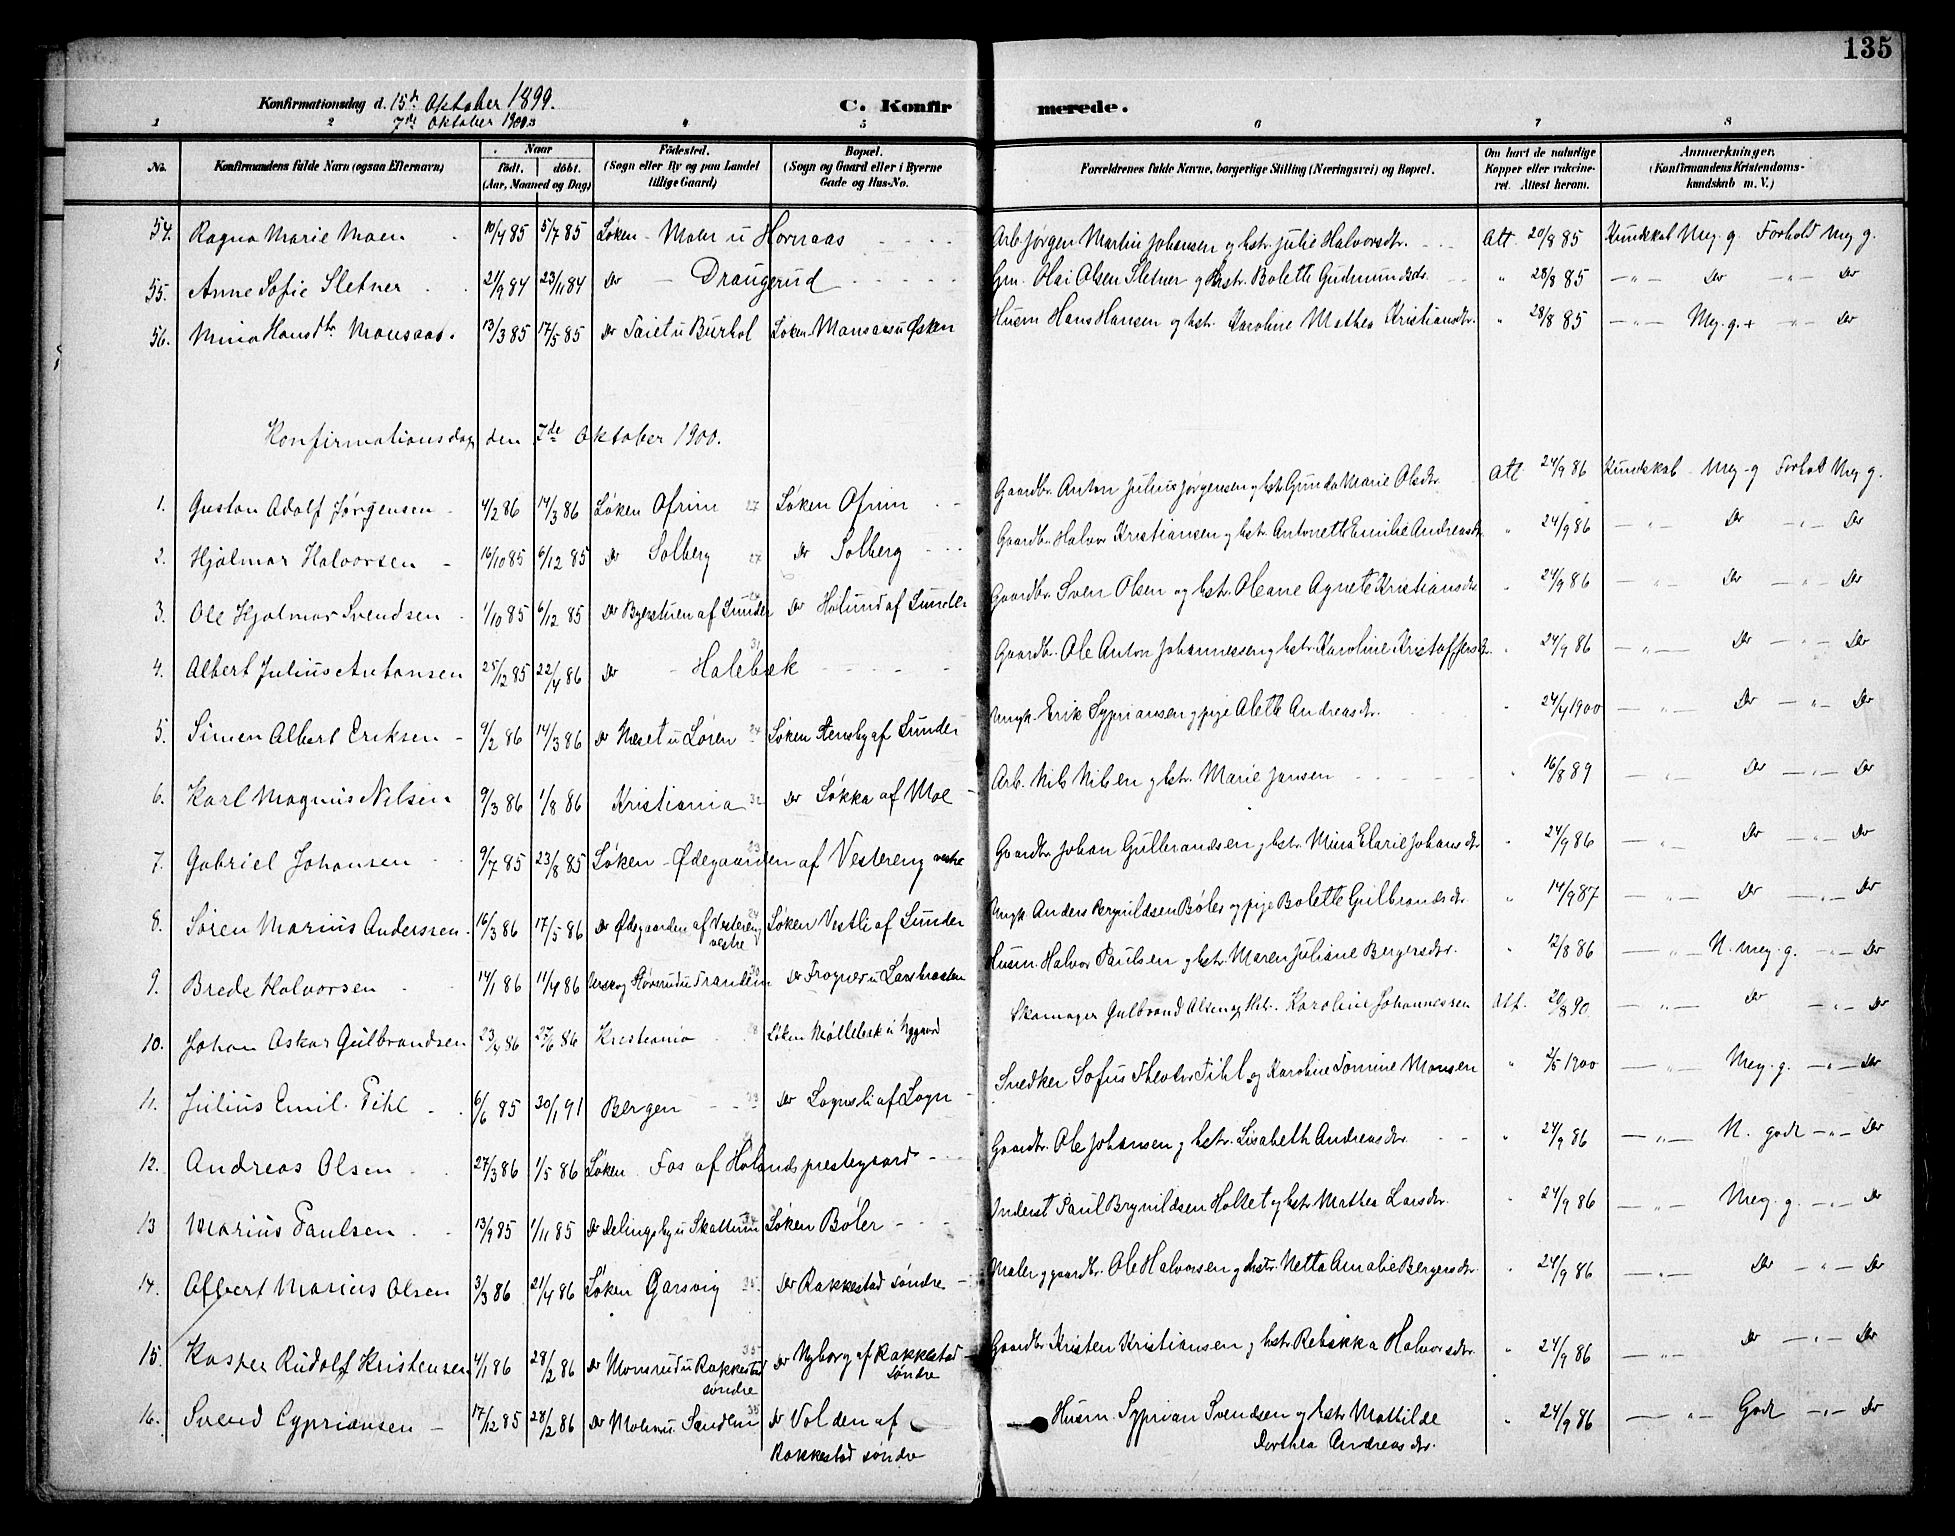 135
Konfirmationsdag d. 15de Oktober 1899.
7de Oktober 1900.
C. Konfirmerede.
1 2 4 5 6 7 8
No. Konfirmandens fulde Navn (ogsaa Efternavn) Naar födt. döbt. (Aar, Maaned og Dag) Födested. (Sogn eller By og paa Landet tillige Gaard) Bopæl. (Sogn og Gaard eller i Byerne Gade og Hus-No. Forældrenes fulde Navne, borgerlige Stilling (Næringsvei) og Bopæl. Om havt de naturlige Kopper eller vakcineret. Attest herom. Anmærkninger. (Konfirmandens Kristendomskundskab m. V.)
54. Ragna Marie Moen 10/4 85 5/7 85 Løken - Moler u Hornaas Arb. Jørgen Martin Johansen og hstr. Julie Halvorsdtr. Att. 20/8 85 Kundskab Meg. g. Forhold Meg g.
55. Anne Sofie Sletner 21/9 84 23/11 84 Do - Draugerud Gm. Olai Olsen Sletner og hstr. Bolette Gudmundsdr. " 28/8 85 -"- Do -"- Do
56. Mina Hansdtr. Monsaas. 13/3 85 17/5 85 Do Taiet u Burhol Løken Mansaas u Økern Husm Hans Hansen og hstr. Karoline Mathea Kristiansdtr. " 28/8 85 -"- Meg. g. + -"- Do
Konfirmationsdag den 7de Oktober 1900.
1. Gustav Adolf Jørgensen 4/2 86 14/3 86 Løken Ofrim 27 Løken Ofrim Gaardbr. Anton Julius Jørgensen og hstr Gunda Marie Olsdtr. Att 24/9 86 Kundskab Meg g Forhold Meg g.
2. Hjalmar Halvorsen 16/10 85 6/12 85 Do Solberg 27 Do Solberg Gaardbr. Halvor Kristiansen og hstr. Antonette Emilie Andreasdtr. " 24/9 86 -"- Do -"- Do
3. Ole Hjalmar Svendsen 1/10 85 6/12 85 Do Byerstuen af Sunder Do Holund af Sunde Gaardbr. Sven Olsen og hstr. Oleane Agnete Kristiansdtr " 24/9 86 -"- Do -"- Do
4. Albert Julius Antonsen 25/12 85 22/4 86 Do - Holebæk Gaardbr. Ole Anton Johannessen og hstr. Karoline Kristoffersdtr. " 24/9 86 -"- Do -"- Do
5. Simen Albert Eriksen 9/2 86 14/3 86 Do Næset u Løren 24 Løken Stensby af Sunder Ungk. Erik Syprinasen og pige Alette Andreasdtr. " 24/4 1900 -"- Do -"- Do
6. Karl Magnus Nilsen 9/3 86 1/8 86 Kristiania 32 Do Løkka af Moe Arb. Nils Nilsen og hstr. Marie Jansen " 16/8 89 -"- Do -"- Do
7. Gabriel Johansen 9/7 85 23/8 85 Løken - Ødegaarden af Vestereng vestre Gaardbr. Johan Gulbrandsen og hstr. Mina Elarie Johansdtr " 24/9 86 -"- Do -"- Do
8. Søren Marius Anderssen 16/3 86 17/5 86 Do Ødegaarden af Vestereng vestre Løken Vestli af Sunder Ungk Anders Brynildsen Bøler og pige Bolette Gulbrandsdtr " 14/9 87 -"- Do -"- Do
9. Brede Halvorsen 14/1 86 11/4 86 Urskog Høverud u Tranden 30 Do Frogner u Lars bråten Husm. Halvor Paulsen og hstr. Maren Juliane Bergersdtr. " 12/8 86 -"- N. meg. g. -"- Do
10. Johan Askar Gulbrandsen 23/4 86 27/6 86 Kristiania Løken Møllebæk u Nygaard Skomager Gulbrand Olsen og hstr. Karoline Johannessen Att. 20/8 90 -"- Do -"- Do
11. Julius Emil Pihl 6/6 85 30/1 91 Bergen 33 Do Lognsli af Logn Snedker Sofus Theodor Pihl og Karoline Tomine Monsen " 2/5 1900 -"- Meg. g. -"- Do
12. Andreas Olsen 27/3 86 1/5 86 Løken Fos af Hølands prestegaard Gaardbr. Ole Johansen og hstr. Lisabeth Andreasdtr. " 24/9 86 -"- N. godt -"- Do
13 Marius Paulsen 13/9 85 1/11 85 Do Delingsby u Skattum Løken Bøler Inderst Paul Brynildsen Holtet og hstr. Mathea Larsdtr. " 24/9 86 -"- Meg. g. -"- Do
14. Albert Marius Olsen 3/3 86 21/4 86 Løken Garsvig 35 Do Rakkestad søndre Maler og gaardbr. Ole Halvorsen og hstr Netta Amalie Bergersdtr. " 24/9 86 -"- Do -"- Do
15. Kasper Rudolf Kristensen 4/1 86 28/2 86 Do Monsrud u Rakkestad søndre 35 Do Nyborg af Rakkestad søndre Gaardbr Kristen Kristiansen og hstr Rebekka Halvorsdtr. " 24/9 86 -"- Do -"- Do
16. Svend Cypriansen 17/12 85 28/2 86 Do Molin u Sanden 35 Do Volden af Rakkestad søndre Husm Syprian Svendsen og hstr Mathilde Dorthea Andreasdtr. " 24/9 86 -"- Godt -"- Do